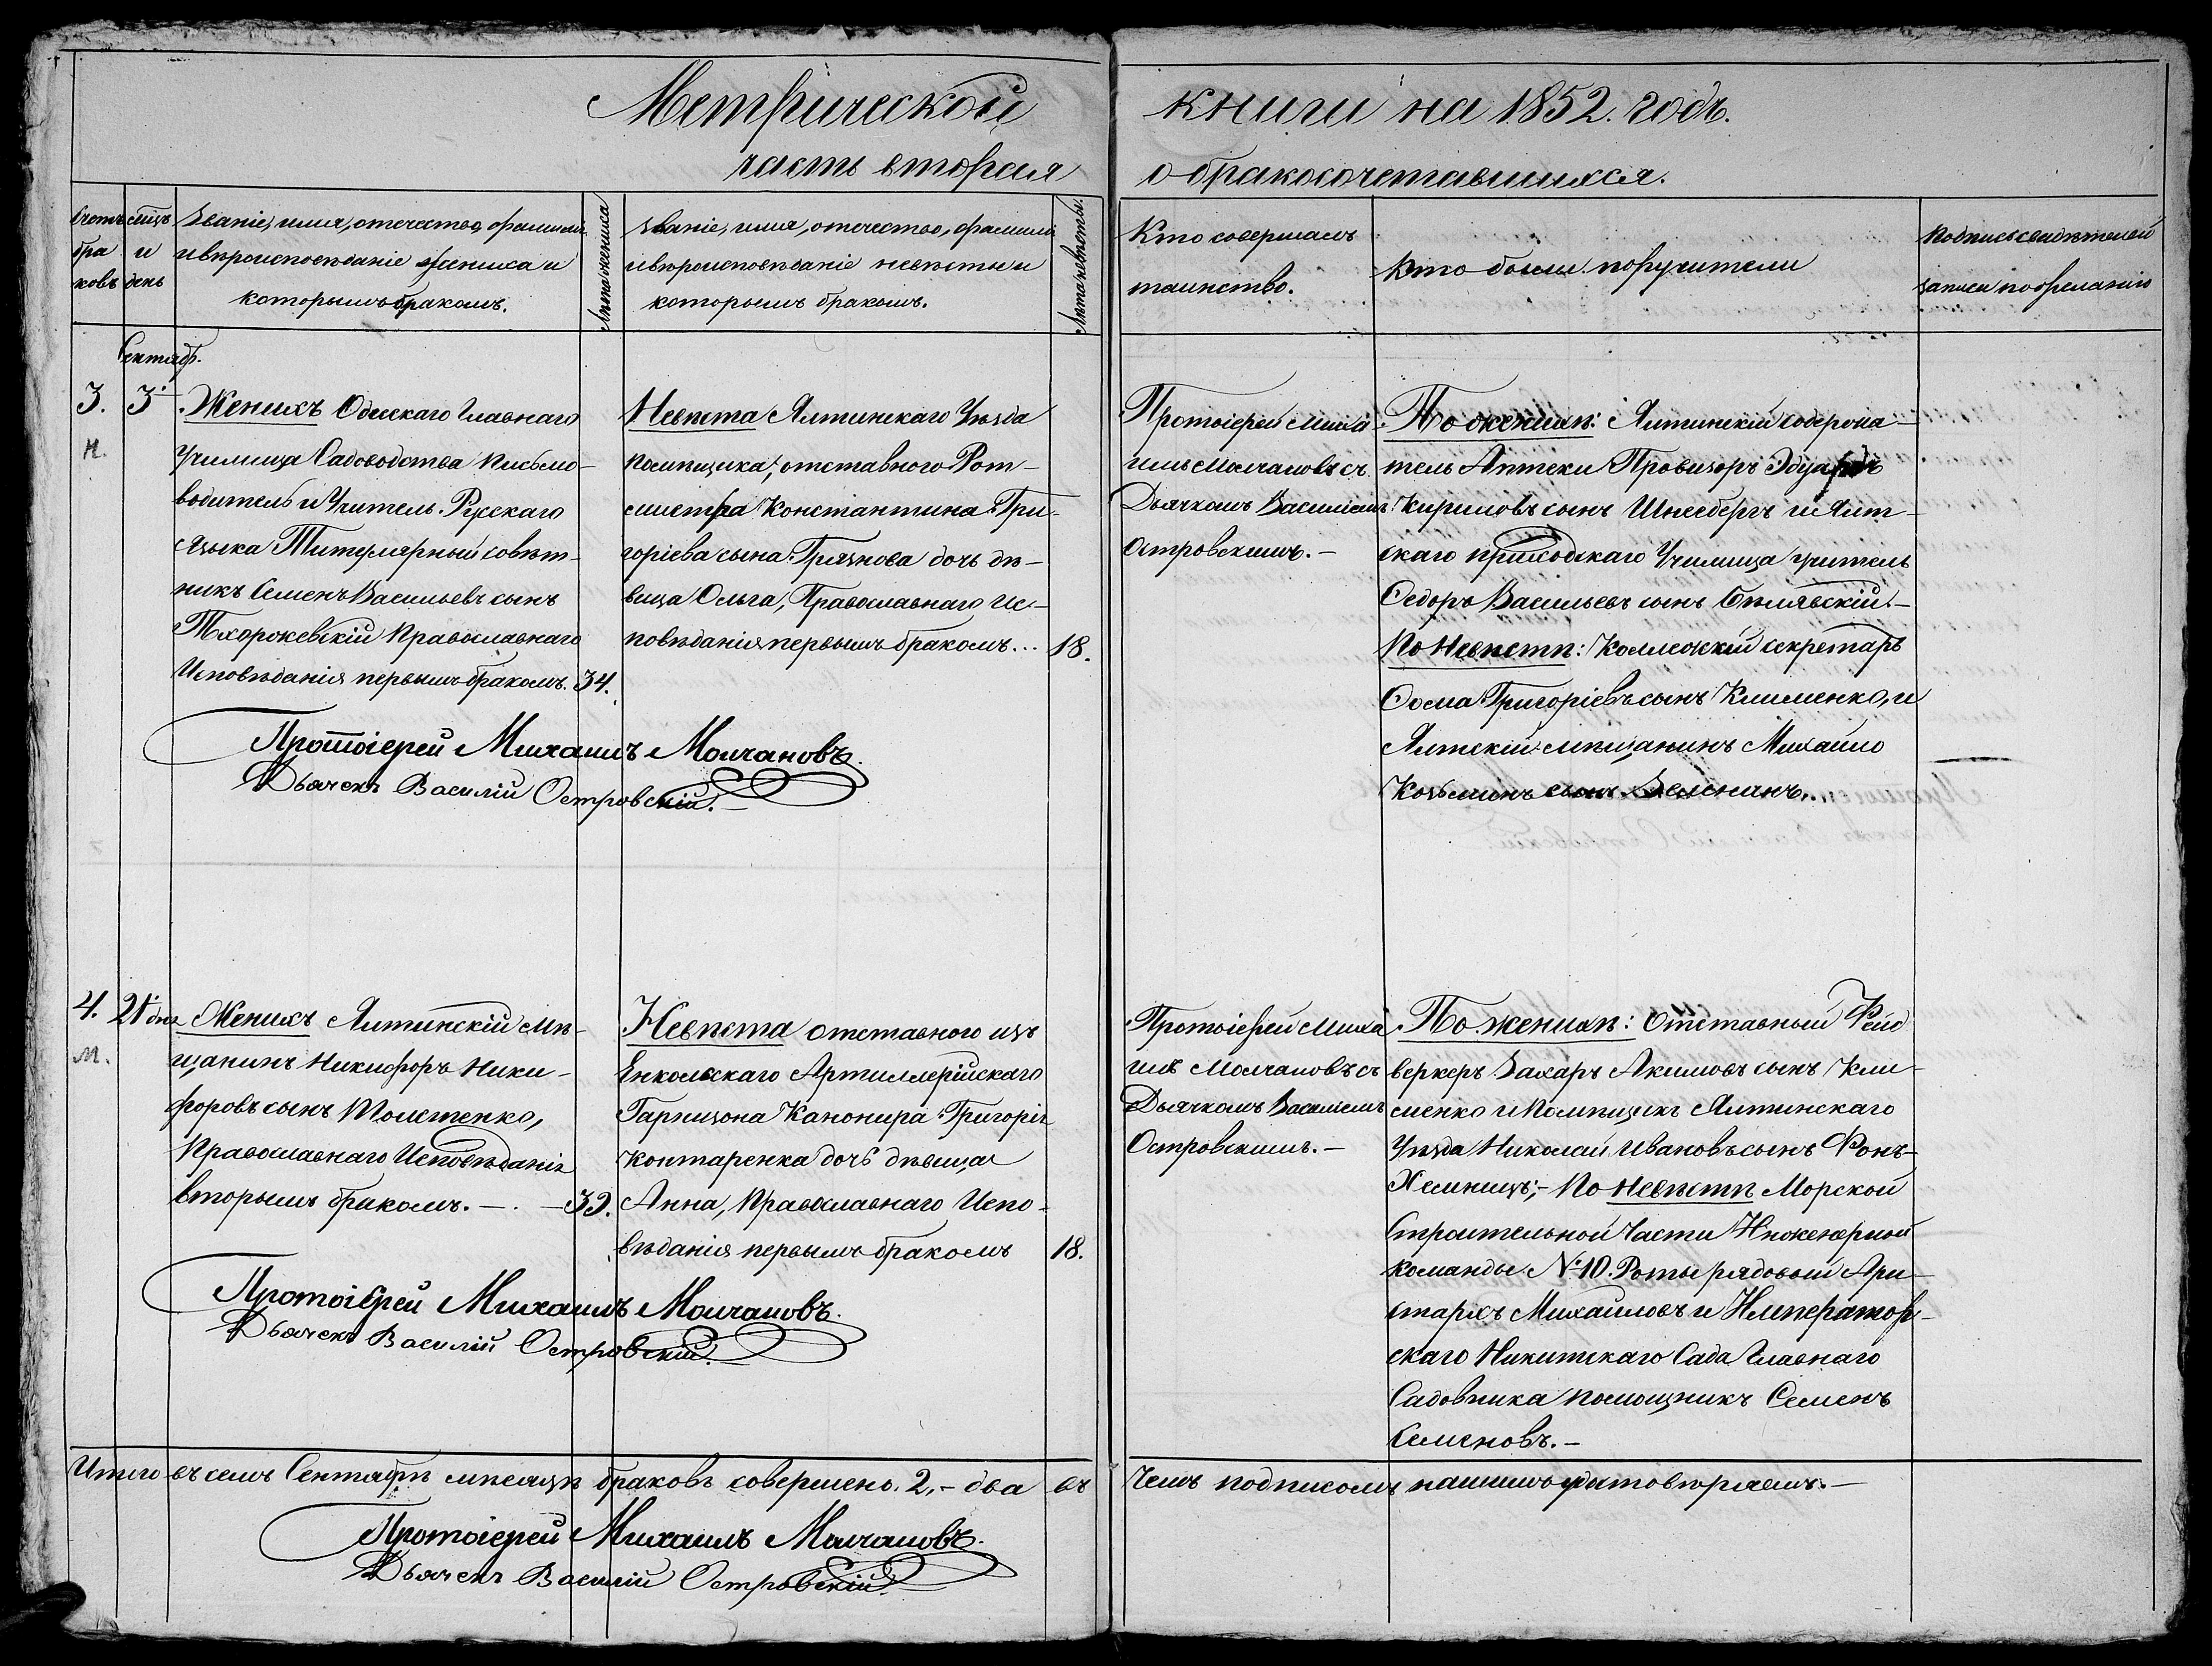 Метрической
книги на 1852. годъ.
часть вторая
о бракосочетавшихся.
Счетъ
бра
ковъ
мцъ
и
день
Званіе, имя, отечество, фамилія
и вѣроисповѣданіе жениха и
которымъ бракомъ.
Лѣта жениха
Званіе, имя, отечество, фамилія
и вѣроисповѣданіе невѣсты и
которымъ бракомъ.
Лѣта невѣсты.
Кто совершалъ
таинство.
Кто были поручители
Подпись свидѣтелей
записи по желанію
Сентябр.
3.
Н.
3.
Женихъ Одесскаго Главнаго
Училища Садоводства Письмо-
водитель и Учитель Русскаго
языка Титулярный совѣт-
никъ Семенъ Васильевъ сынъ
Тхоржевскій Православнаго
Исповѣданія первымъ бракомъ. 34.
Невѣста Ялтинскаго Уѣзда
помѣщика, отставного Рот-
мистра Константина Гри-
горіева сына Грязнова дочь дѣ-
вица Ольга, Православнаго Ис-
повѣданія первымъ бракомъ... 18.
Протоіерей Миха-
илъ Молчановъ съ
Дьячкомъ Василіемъ
Островскимъ.-
По женихѣ: Ялтинскій содержа-
тель Аптеки Провизоръ Эдуардъ
Кириловъ сынъ Шнееберъ и Ялт-
скаго приходскаго Училища учитель
Ѳедоръ Васильевъ сынъ Бѣлявскій.-
По Невѣстѣ: Коллежскій секретарь
Ѳома Григоріевъ сынъ Клименко, и
Ялтскій мѣщанинъ Михайло
Козьминъ сынъ Зеленинъ.
Протоіерей Михаилъ Молчановъ.
Дьячекъ Василій Островскій.-
4.
М.
21 дня
Женихъ Ялтинскій мѣ-
щанинъ Никифоръ Ники-
форовъ сынъ Толстенко,
Православнаго Исповѣданія
вторымъ бракомъ. - . - 39.
Невѣста отставного изъ
Енкольскаго Артиллерійскаго
Гарнизона Канонира Григорія
Контаренка дочь дѣвица
Анна, Православнаго Испо-
вѣданія первымъ бракомъ 18.
Протоіерей Миха
илъ Молчановъ съ
Дьячкомъ Василіемъ
Островскимъ.-
По женихѣ: Отставный Фей
веркеръ Захаръ Акимовъ сынъ Кли-
менко и Помѣщикъ Ялтинскаго
Уѣзда Николай Ивановъ сынъ Фонъ-
Хемницъ;- По Невѣстѣ Морской
Строительной Части Инженерной
команды №10. Роты рядовый Ари-
стархъ Михайловъ и Император-
скаго Никитскаго Сада Главнаго
Садовника помощникъ Семенъ
Семеновъ.-
Протоіерей Михаилъ Молчановъ.
Дьячекъ Василій Островскій.
Итого въ семъ Сентябрѣ мѣсяцѣ браковъ совершено. 2,- два въ
чемъ подписомъ нашимъ удатовѣряемъ.-
Протоіерей Михаилъ Молчановъ.
Дьячекъ Василій Островскій.